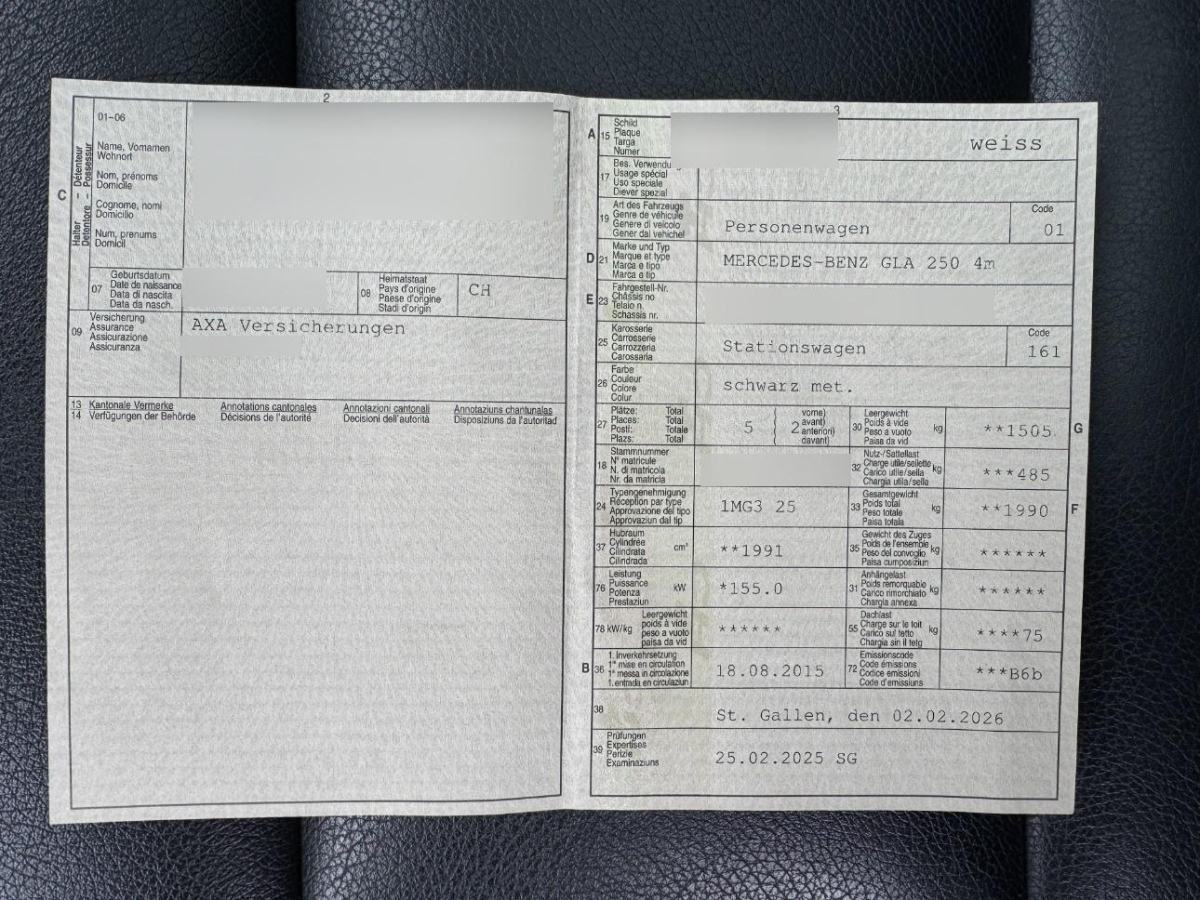 2
C
Halter - Détenteur
Detentore - Possessur
01-06
Name, Vornamen
Wohnort
Nom, prénoms
Domicile
Cognome, nomi
Domicilio
Num, prenums
Domicil
07
Geburtsdatum
Date de naissance
Data di nascita
Data da nasch.
08
Heimatstaat
Pays d'origine
Paese d'origine
Stadi d'origin
CH
09
Versicherung
Assurance
Assicurazione
Assicuranza
AXA Versicherungen
13 Kantonale Vermerke Annotations cantonales Annotazioni cantonali Annotaziuns chantunalas
14 Verfügungen der Behörde Décisions de l'autorité Decisioni dell'autorità Disposiziuns da l'autoritad
3
A 15
Schild
Plaque
Targa
Numer
weiss
17
Bes. Verwendu
Usage spécial
Uso speciale
Diever spezial
19
Art des Fahrzeugs
Genre de véhicule
Genere di veicolo
Gener dal vehichel
Personenwagen
Code
01
D 21
Marke und Typ
Marque et type
Marca e tipo
Marca e tip
MERCEDES-BENZ GLA 250 4m
E 23
Fahrgestell-Nr.
Châssis no
Telaio n.
Schassis nr.
25
Karosserie
Carrosserie
Carrozzeria
Carossaria
Stationswagen
Code
161
26
Farbe
Couleur
Colore
Colur
schwarz met.
27
Plätze: Total
Places: Total
Posti: Totale
Plazs: Total
5
2
vorne)
avant)
anteriori)
davant)
30
Leergewicht
Poids à vide
Peso a vuoto
Paisa da vid
kg
**1505
G
18
Stammnummer
N° matricule
N. di matricola
Nr. da matricla
32
Nutz-/Sattellast
Charge utile/sellette
Carico utile/sella
Chargia utila/sella
kg
***485
24
Typengenehmigung
Réception par type
Approvazione del tipo
Approvaziun dal tip
1MG3 25
33
Gesamtgewicht
Poids total
Peso totale
Paisa totala
kg
**1990
F
37
Hubraum
Cylindrée
Cilindrata
Cilindrada
cm³
**1991
35
Gewicht des Zuges
Poids de l'ensemble
Peso del convoglio
Paisa cumposiziun
kg
******
76
Leistung
Puissance
Potenza
Prestaziun
kW
*155.0
31
Anhängelast
Poids remorquable
Carico rimorchiato
Chargia annexa
kg
******
78 kW/kg
Leergewicht
poids à vide
peso a vuoto
paisa da vid
******
55
Dachlast
Charge sur le toit
Carico sul tetto
Chargia sin il tetg
kg
****75
B 36
1. Inverkehrsetzung
1re mise en circulation
1a messa in circolazione
1. entrada en circulaziun
18.08.2015
72
Emissionscode
Code émissions
Codice emissioni
Code d'emissiuns
***B6b
38
St. Gallen, den 02.02.2026
39
Prüfungen
Expertises
Perizie
Examinaziuns
25.02.2025 SG